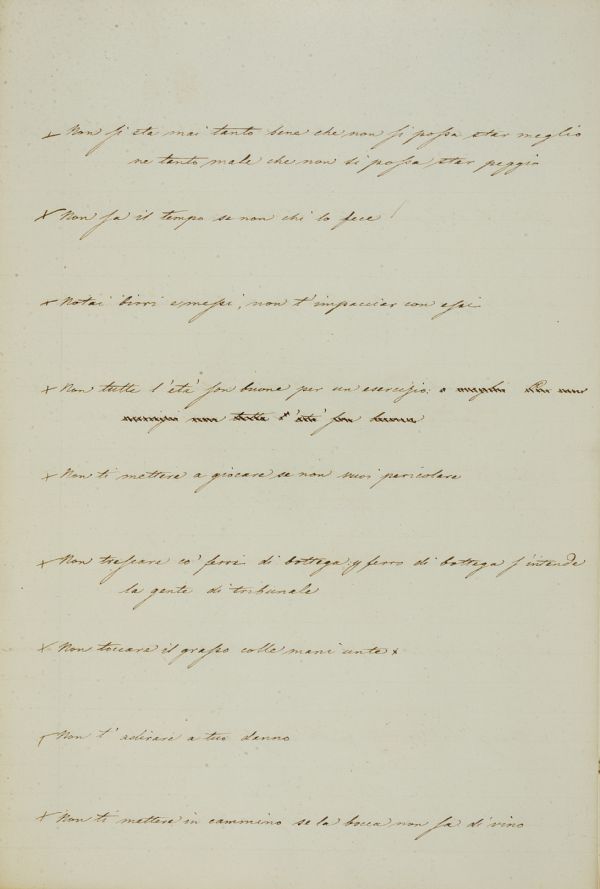 x Non si sta mai tanto bene che non si possa star meglio
ne tanto male che non si possa star peggio
x Non fa il tempo se non chi lo fece
x Notai birri e messi, non t'impacciar con essi
x Non tutte l'età son buone per un esercizio: o meglio Per un
esercizio non tutte l'età son buone
x Non ti mettere a giocare se non vuoi pericolare
x Non trescare co' ferri di bottega, p ferro di bottega s'intende
la gente di tribunale
x Non toccare il grasso colle mani unte x
x Non t'adirare a tuo danno
x Non ti mettere in cammino se la bocca non sa di vino